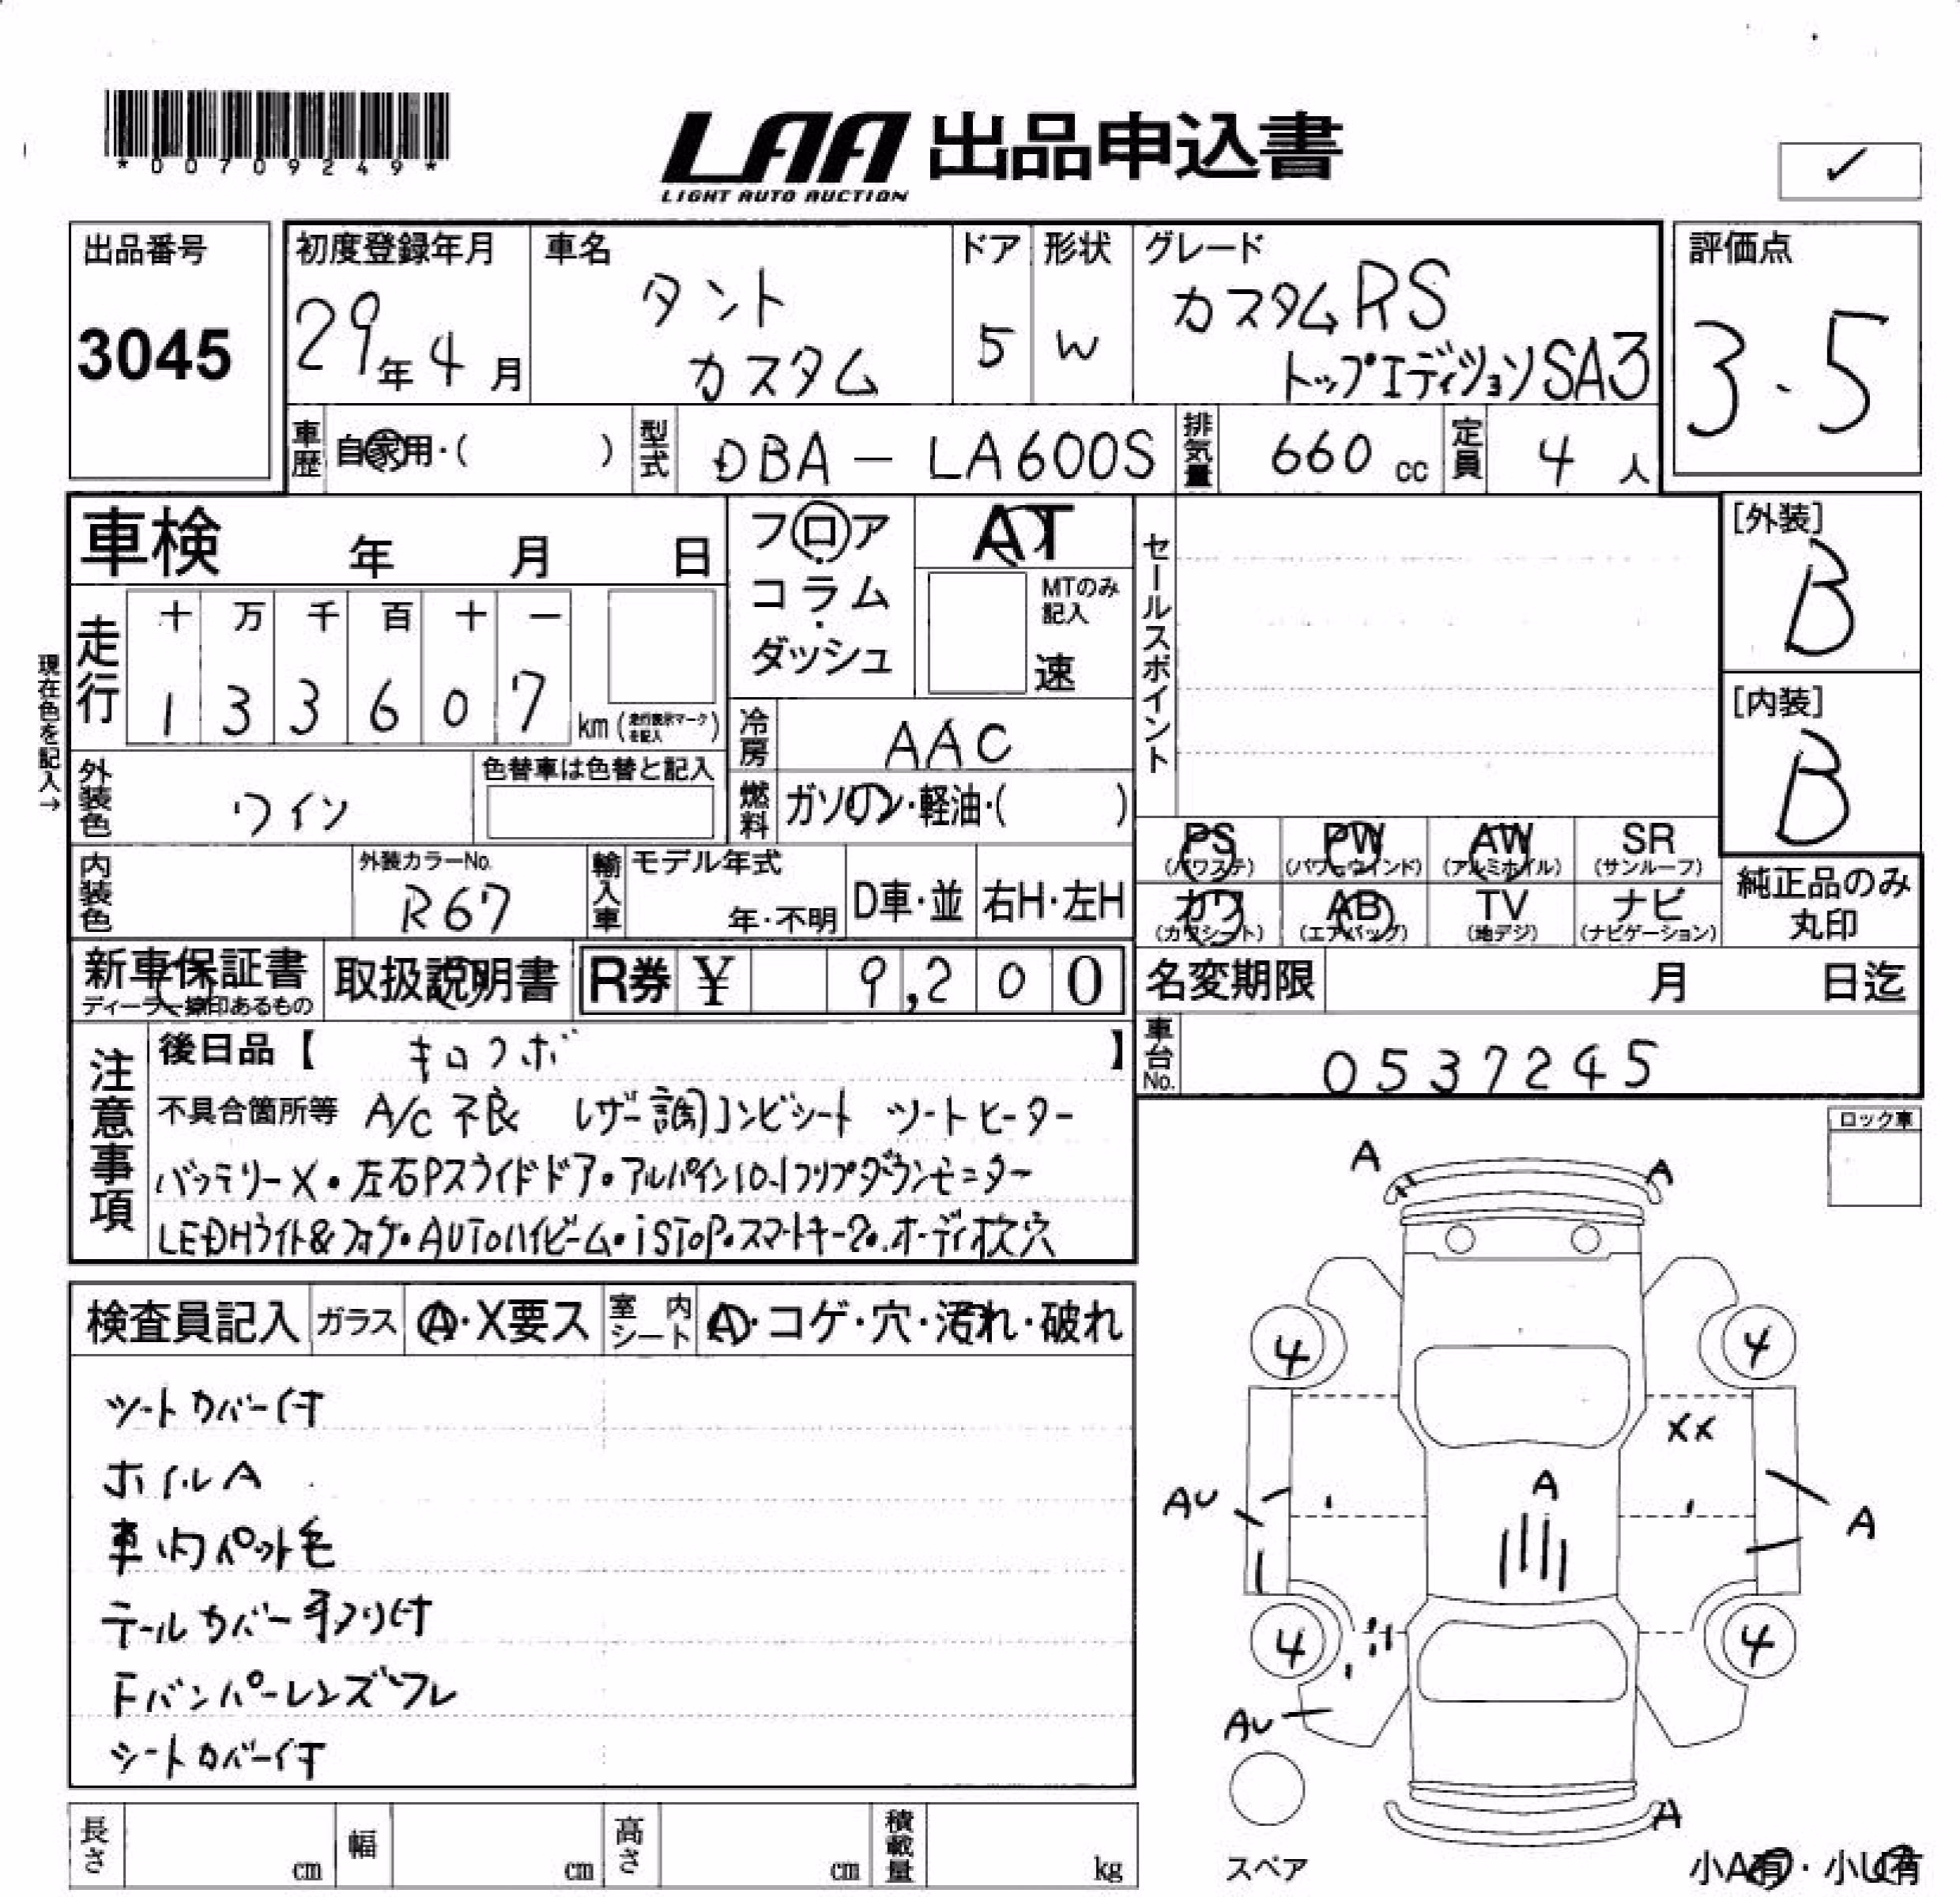 *00709249*
LAA 出品申込書
LIGHT AUTO AUCTION
✓
出品番号
3045
初度登録年月
29年4月
車名
タント
カスタム
ドア
5
形状
W
グレード
カスタムRS
トップエディションSA3
評価点
3.5
車歴
自家用・( )
型式
DBA-LA600S
排気量
660 cc
定員
4 人
車検 年 月 日
フロア
コラム
ダッシュ
AT
MTのみ
記入
速
セールスポイント
[外装]
B
[内装]
B
現在色を記入→
走行
十 万 千 百 十 一
1 3 3 6 0 7
km (走行表示マークを記入)
冷房
AAC
外装色
ワイン
色替車は色替と記入
燃料
ガソリン・軽油・( )
PS (パワステ)
PW (パワーウインド)
AW (アルミホイル)
SR (サンルーフ)
カワ (カワシート)
AB (エアバッグ)
TV (地デジ)
ナビ (ナビゲーション)
純正品のみ
丸印
内装色
外装カラーNo.
R67
輸入車
モデル年式
年・不明
D車・並
右H・左H
新車保証書
ディーラー捺印あるもの
取扱説明書
R券 ¥ 9,200
名変期限 月 日迄
車台No.
0537245
注意事項
後日品【 】
不具合箇所等 A/C不良 レザー調コンビシート シートヒーター
バッテリーX・左右Pスライドドア・アルパイン10.1フリップダウンモニター
LEDHライト&フォグ・AUTOハイビーム・iSTOP・スマートキー2・オーディオ欠穴
ロック車
検査員記入
ガラス
A・X要ス
室内シート
A・コゲ・穴・汚れ・破れ
シートカバー付
ホイルA
車内ペット毛
テールカバー付
Fバンパーレンズワレ
シートカバー付
A
A
4
4
XX
A
AU
A
4
4
AU
A
スペア
小A有・小U有
長さ cm
幅 cm
高さ cm
積載量 kg